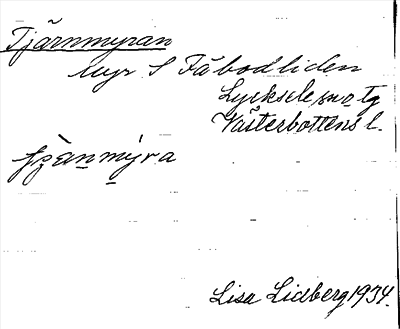 Tjärnmyran
Myr S Fäbodliden
Lycksele sn o tg
Västerbottens l.
Lisa Lidberg 1934.